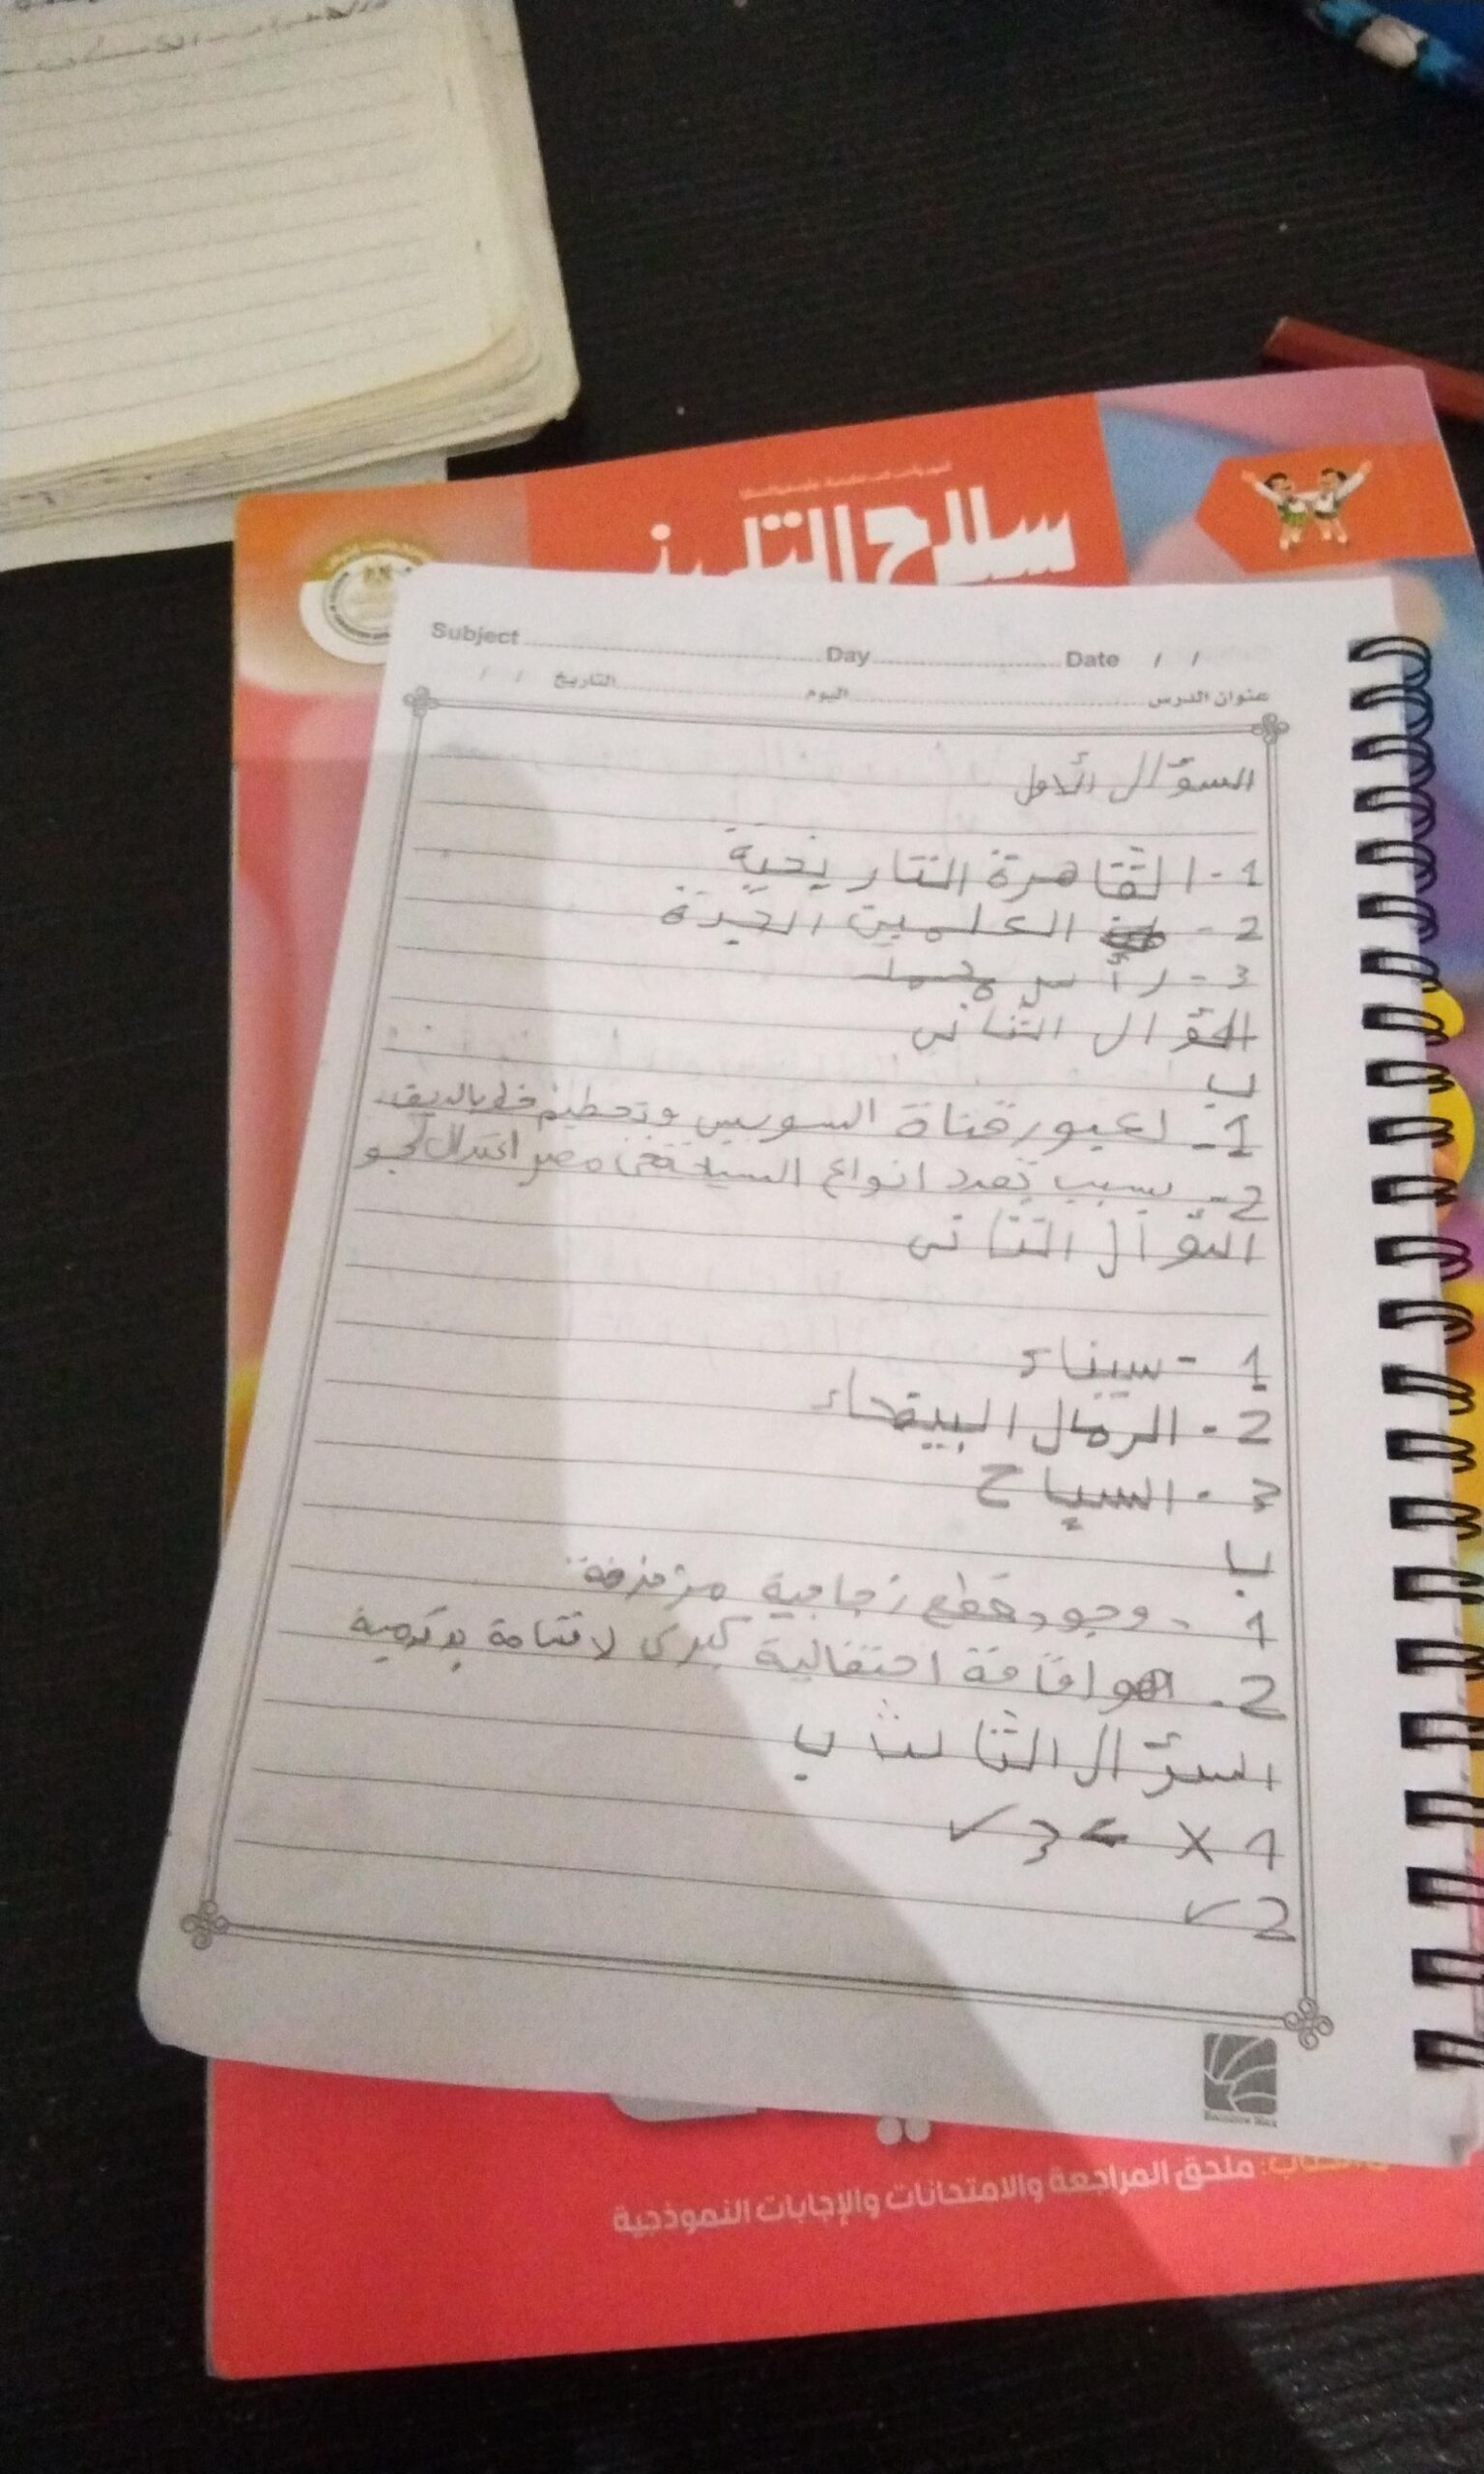 سلاح التلميذ
Subject Day Date / /
عنوان الدرس اليوم التاريخ / /
السؤال الأول
1 - القاهرة التاريخية
2 - العلمين الجيدة
3 - رأس محمد
السؤال الثاني
ب
1 - لعبور قناة السويس وتحطيم خط بالريف.
2 - بسبب تعدد انواع السياحة في مصر اعتدال الجو
السؤال الثاني
1 - سيناء
2 - الرمال البيضاء
3 - السياح
ب
1 - وجود قطع زجاجية مزخرفة
2 - اقامة احتفالية كبرى
السؤال الثالث ب
1 X ← 3 ✓
2 ✓
ملحق المراجعة والامتحانات والإجابات النموذجية